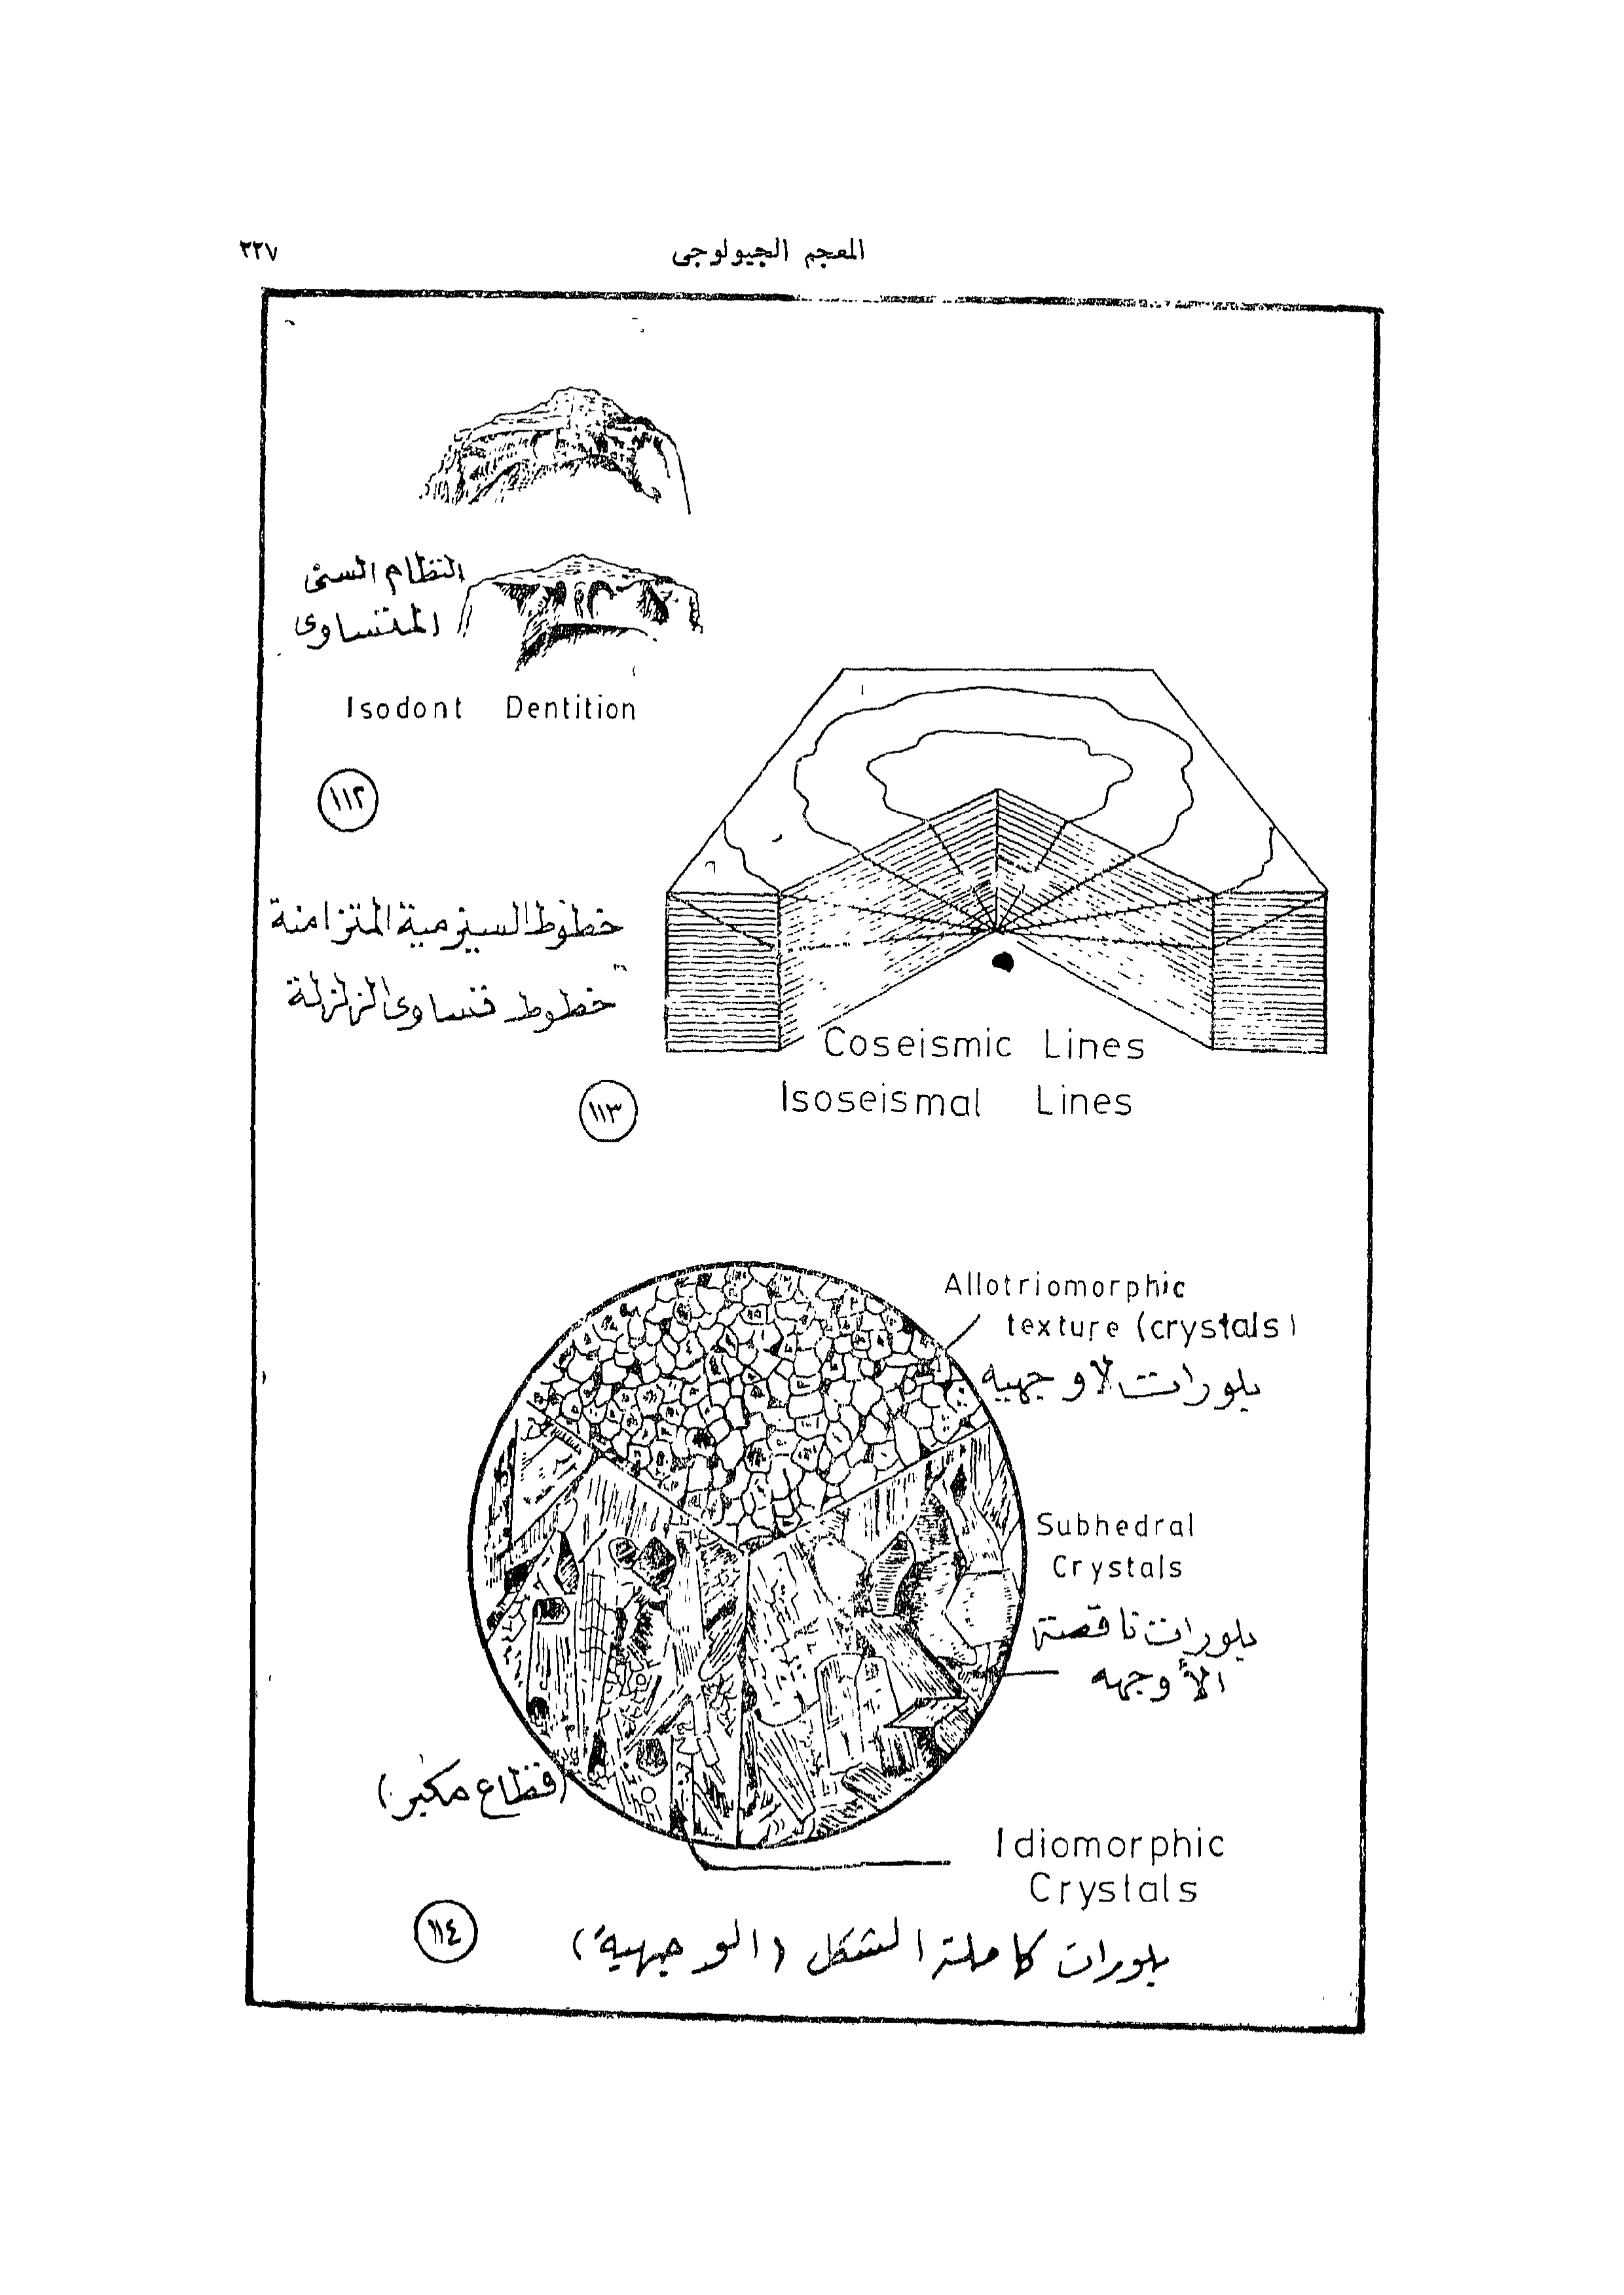 المعجم الجيولوجى
٢٢٧
النظام السنى
المتساوى
Isodont Dentition
١١٢
خطوط السيزمية المتزامنة
خطوط تساوى الزلزلة
Coseismic Lines
Isoseismal Lines
١١٣
Allotriomorphic
texture (crystals)
بلورات لا وجهيه
Subhedral
Crystals
بلورات ناقصة
الأوجه
(قطاع مكبر)
Idiomorphic
Crystals
بلورات كاملة الشكل (الوجهية)
١١٤